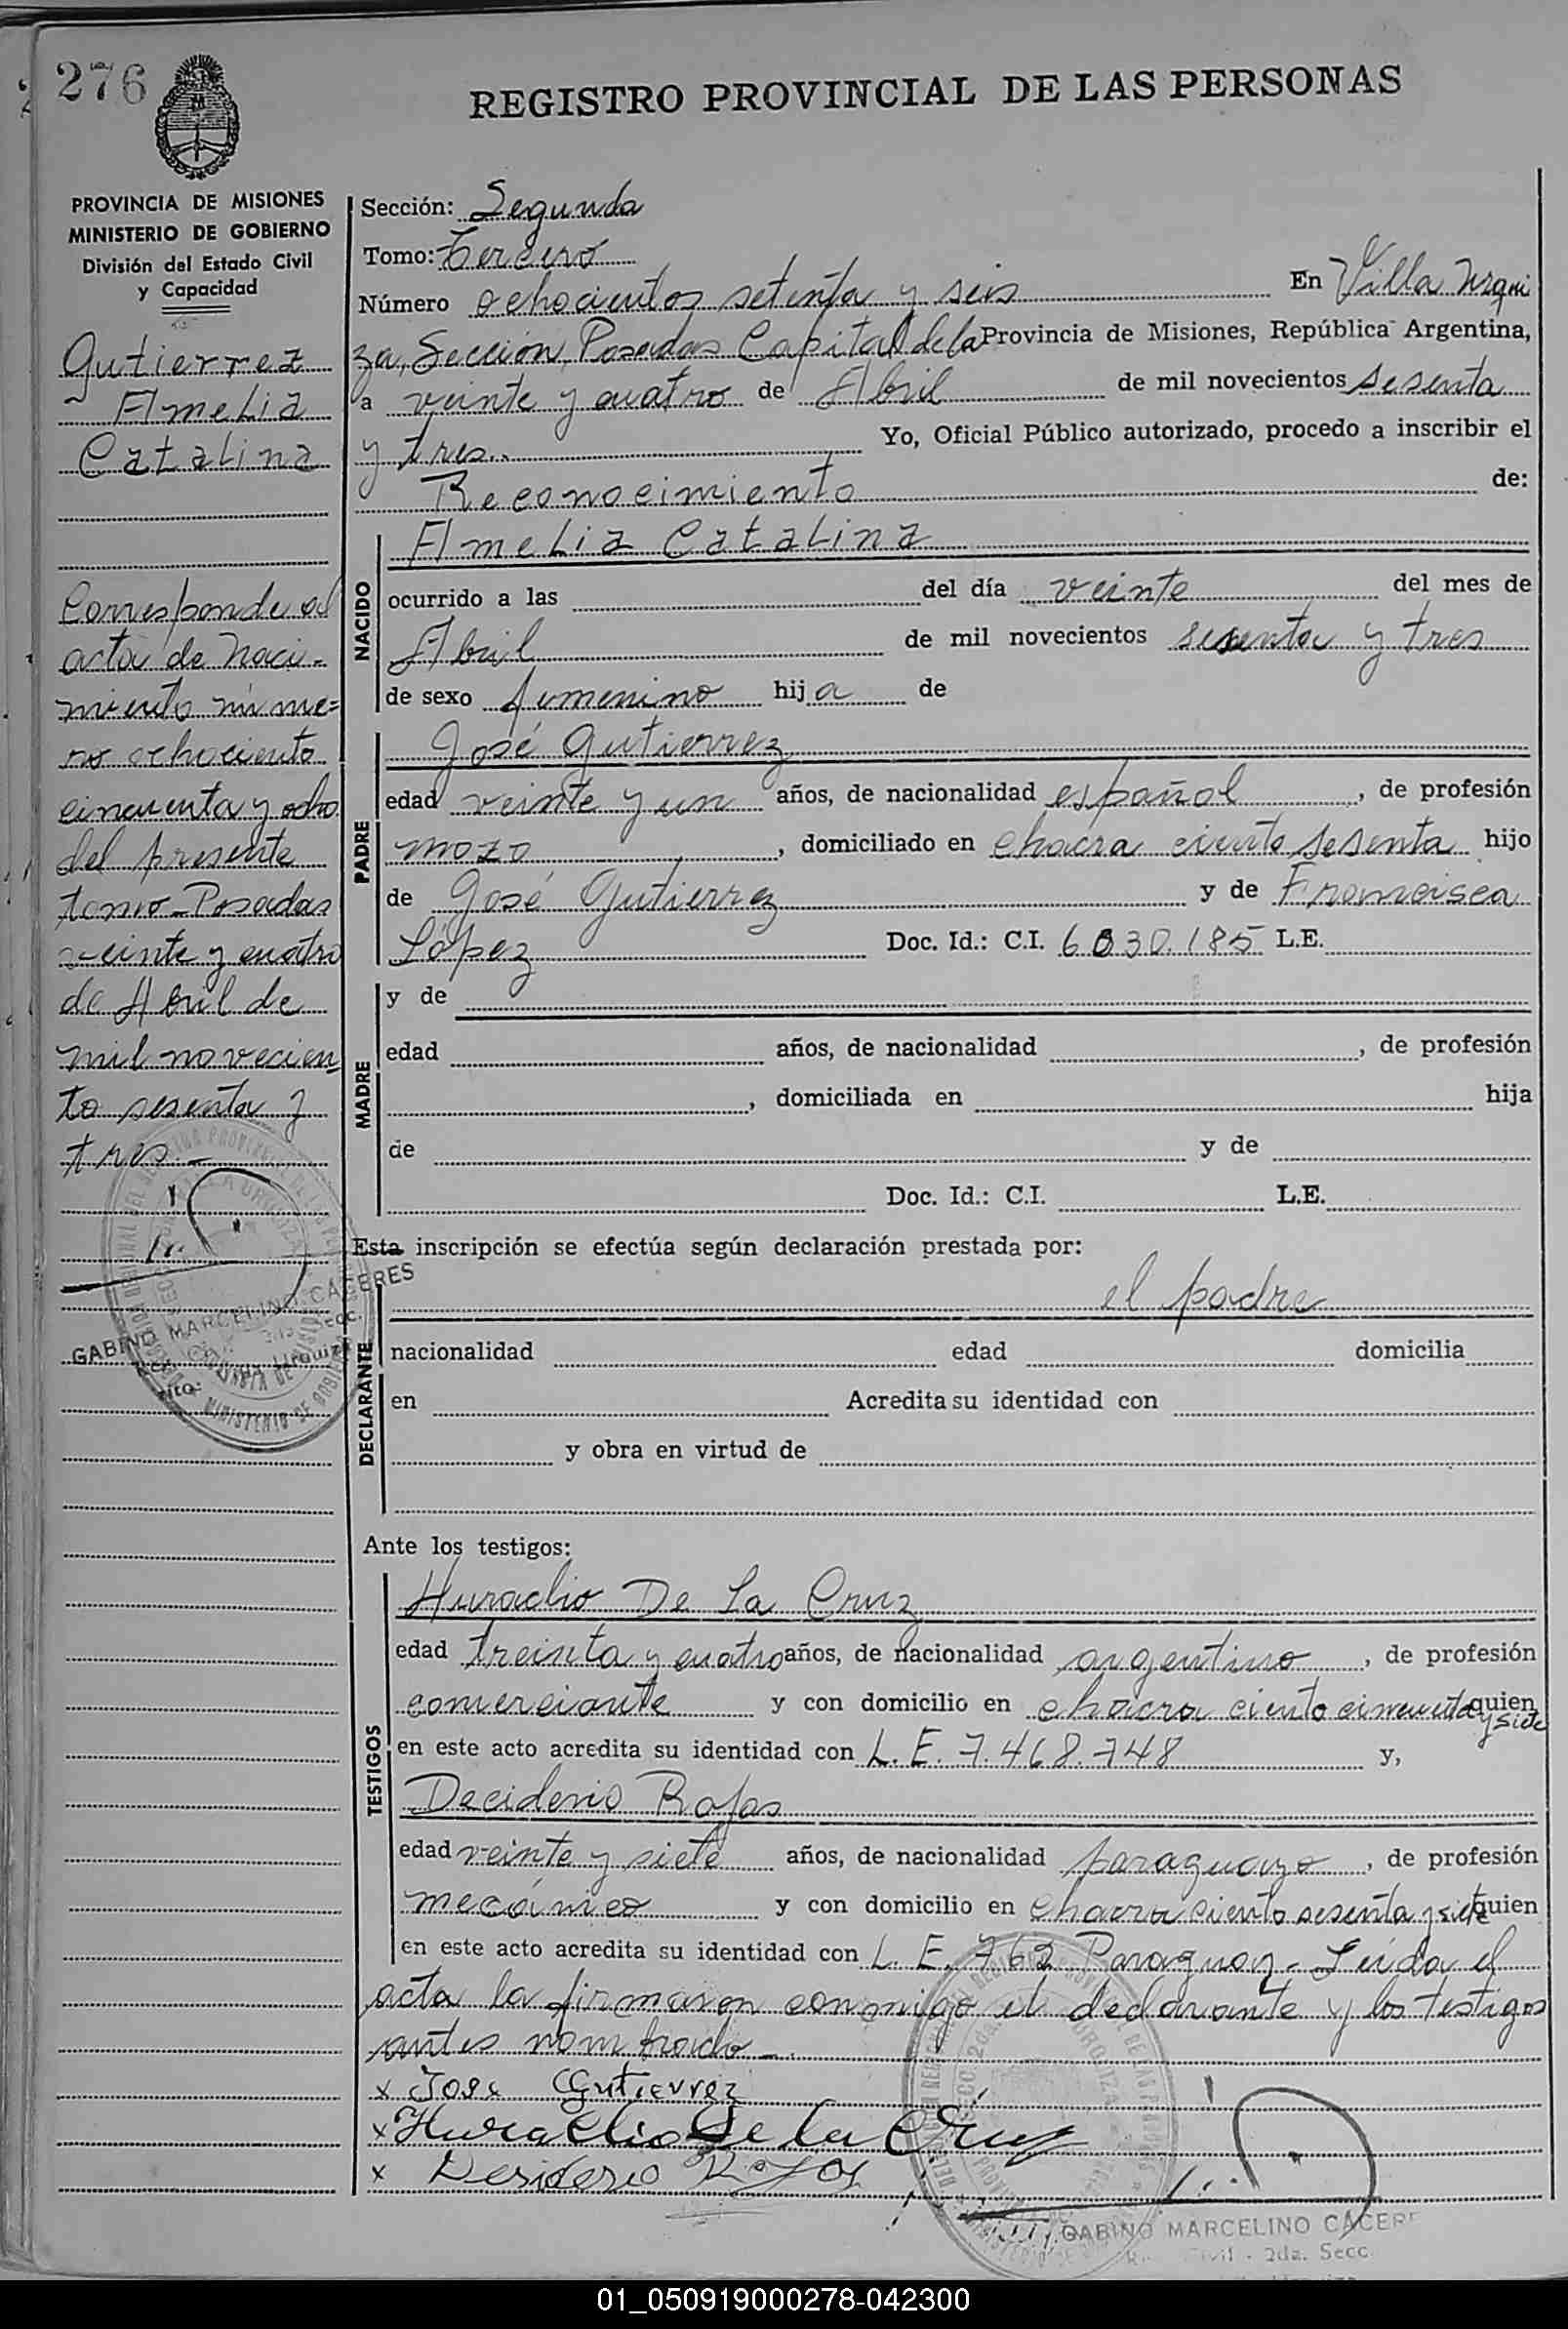 276
REGISTRO PROVINCIAL DE LAS PERSONAS
PROVINCIA DE MISIONES
MINISTERIO DE GOBIERNO
División del Estado Civil
y Capacidad
Gutierrez
Amelia
Catalina
Corresponde al
acta de naci-
miento núme=
ro ochociento
cincuenta y ocho
del presente
tomo - Posadas
veinte y cuatro
de Abril de
mil novecien
to sesenta y
tres.-
GABINO MARCELINO CACERES
Sección: Segunda
Tomo: Tercero
Número ochocientos setenta y seis En Villa Urqui
za, Sección, Posadas Capital de la Provincia de Misiones, República Argentina,
a veinte y cuatro de Abril de mil novecientos sesenta
y tres.. Yo, Oficial Público autorizado, procedo a inscribir el
Reconocimiento de:
NACIDO
Amelia Catalina
ocurrido a las del día veinte del mes de
Abril de mil novecientos sesenta y tres
de sexo femenino hija de
PADRE
José Gutierrez
edad veinte y un años, de nacionalidad español, de profesión
mozo, domiciliado en chacra ciento sesenta hijo
de José Gutierrez y de Francisca
López Doc. Id.: C.I. 6030.185 L.E.
MADRE
y de
edad años, de nacionalidad , de profesión
, domiciliada en hija
de y de
Doc. Id.: C.I. L.E.
Esta inscripción se efectúa según declaración prestada por:
DECLARANTE
el padre
nacionalidad edad domicilia
en Acredita su identidad con
y obra en virtud de
Ante los testigos:
TESTIGOS
Huraclio De La Cruz
edad treinta y cuatro años, de nacionalidad argentino, de profesión
comerciante y con domicilio en chacra ciento cincuenta y siete quien
en este acto acredita su identidad con L. E. 7.468.748 y,
Deciderio Rojas
edad veinte y siete años, de nacionalidad paraguayo, de profesión
mecánico y con domicilio en chacra ciento sesenta y siete quien
en este acto acredita su identidad con L. E. 762 Paraguay - Leída el
acta la firmaron conmigo el declarante y los testigos
antes nombrado -.
x Jose Gutierrez
x Huraclio De la Cruz
x Desiderio Rojas
GABINO MARCELINO CACER
Civil - 2da. Secc.
01_050919000278-042300